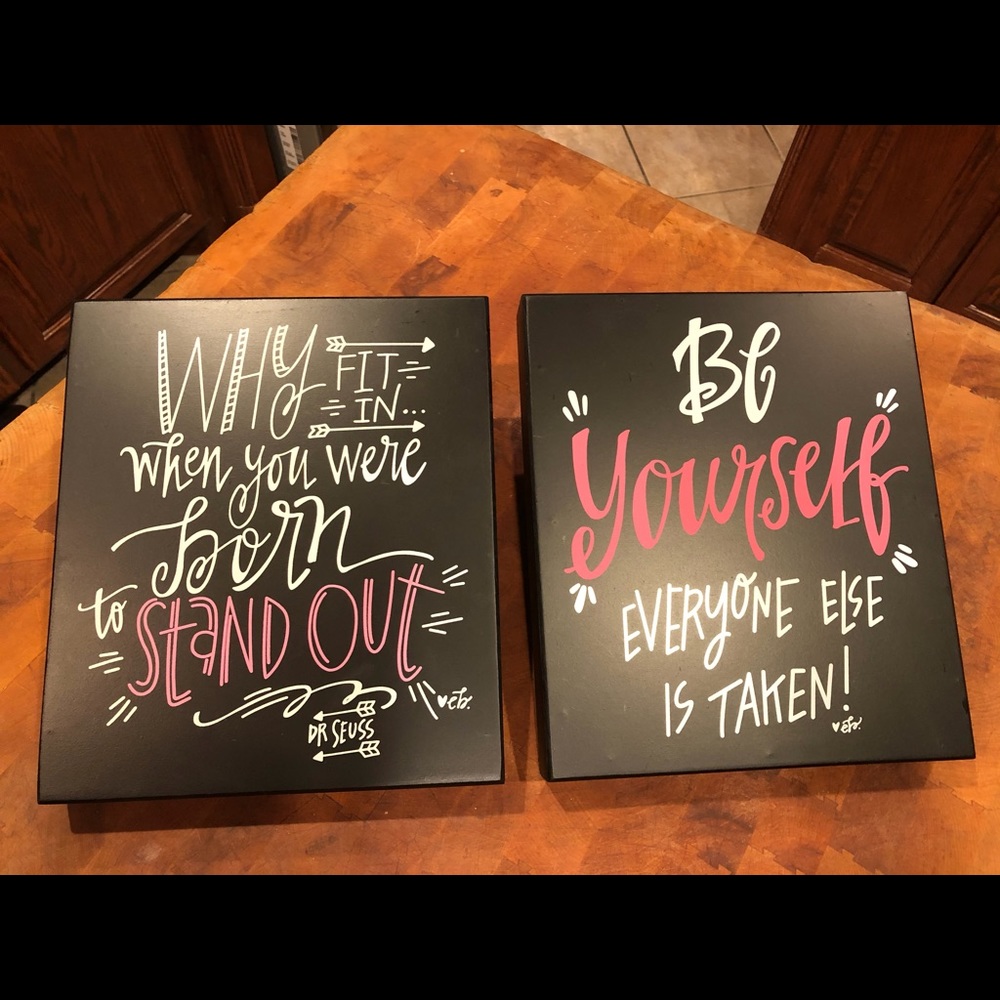 WHY FIT
IN...
when you were
born
to STAND OUT
eb.
DR SEUSS
Be
Yourself
EVERYONE ELSE
IS TAKEN!
eb.